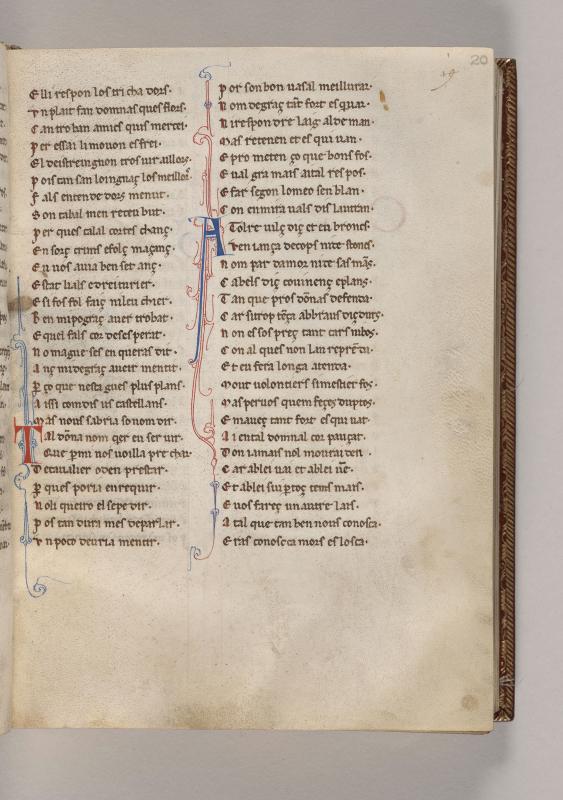 20
19
Elli respon los tri cha dors.
Vn plait fan domnas ques flors.
Can troban amics ques mercei.
Per essai li mouon esfrei.
El destreingnon tros uir aillors.
Pois can san loingnaç los meillors.
F als entende dors menut.
Son cabal men receubut.
Per ques calal cortes chanç.
En sorç crims e folç maçanç.
E u uos auia ben set anç.
Estat lials e dreiturier.
Esi fos fol faiç ni leu chier.
Ben mi pograç auer trobat.
E quei fals cor deses perat.
No magues ses en queras dit.
A nç mi degraç aueir mentit.
Ꝑ ço que nesta gues plus plans.
A issi com dis us castellans.
Mas nous sabria so nom dir.
Tal dōna nom qer eu ser uir.
Que ꝑmi nos uoilla pre char.
De caualier o den prestar.
Ꝑ ques poria enrequir.
Noli queiro el sepe dir.
Pos tan dura mes de parlar.
Vn poco deuria mentir.
Por son bon uasal meillurar.
Nom degraç tāt fort es quiar.
Ni respondre laig al deman.
Mas retenen et es qui uan.
E pro meten ço que bons fos.
E ual gra mais aital res pos.
E far segon lomeo sen blan.
Con en mira uals dis lautran.
A Tolre uilç diç et en broncs.
Ven iança de cops ni de stoncs.
Nom par damor ni de sas māç.
Cabels diç couinenç e plans.
Tan que pros dōnas defenda.
Car sil rop tōça
Non es sos preç tant cars
Con al ques non lan reprēda.
Et eu fera longa atenda.
Mout uolontiers si mestier fos.
Mas per uos quem feçes duptos.
E maueç tant fort es qui uat.
Ai ental domnal cor pauçat.
Don iamais nol mourai den.
Car ablei uai et ablei uē.
Et ablei sui ꝑtoç tems mais.
E uos fareç un autre lais.
A tal que tan ben nous conosca.
Eras conosc ca mors es losca.